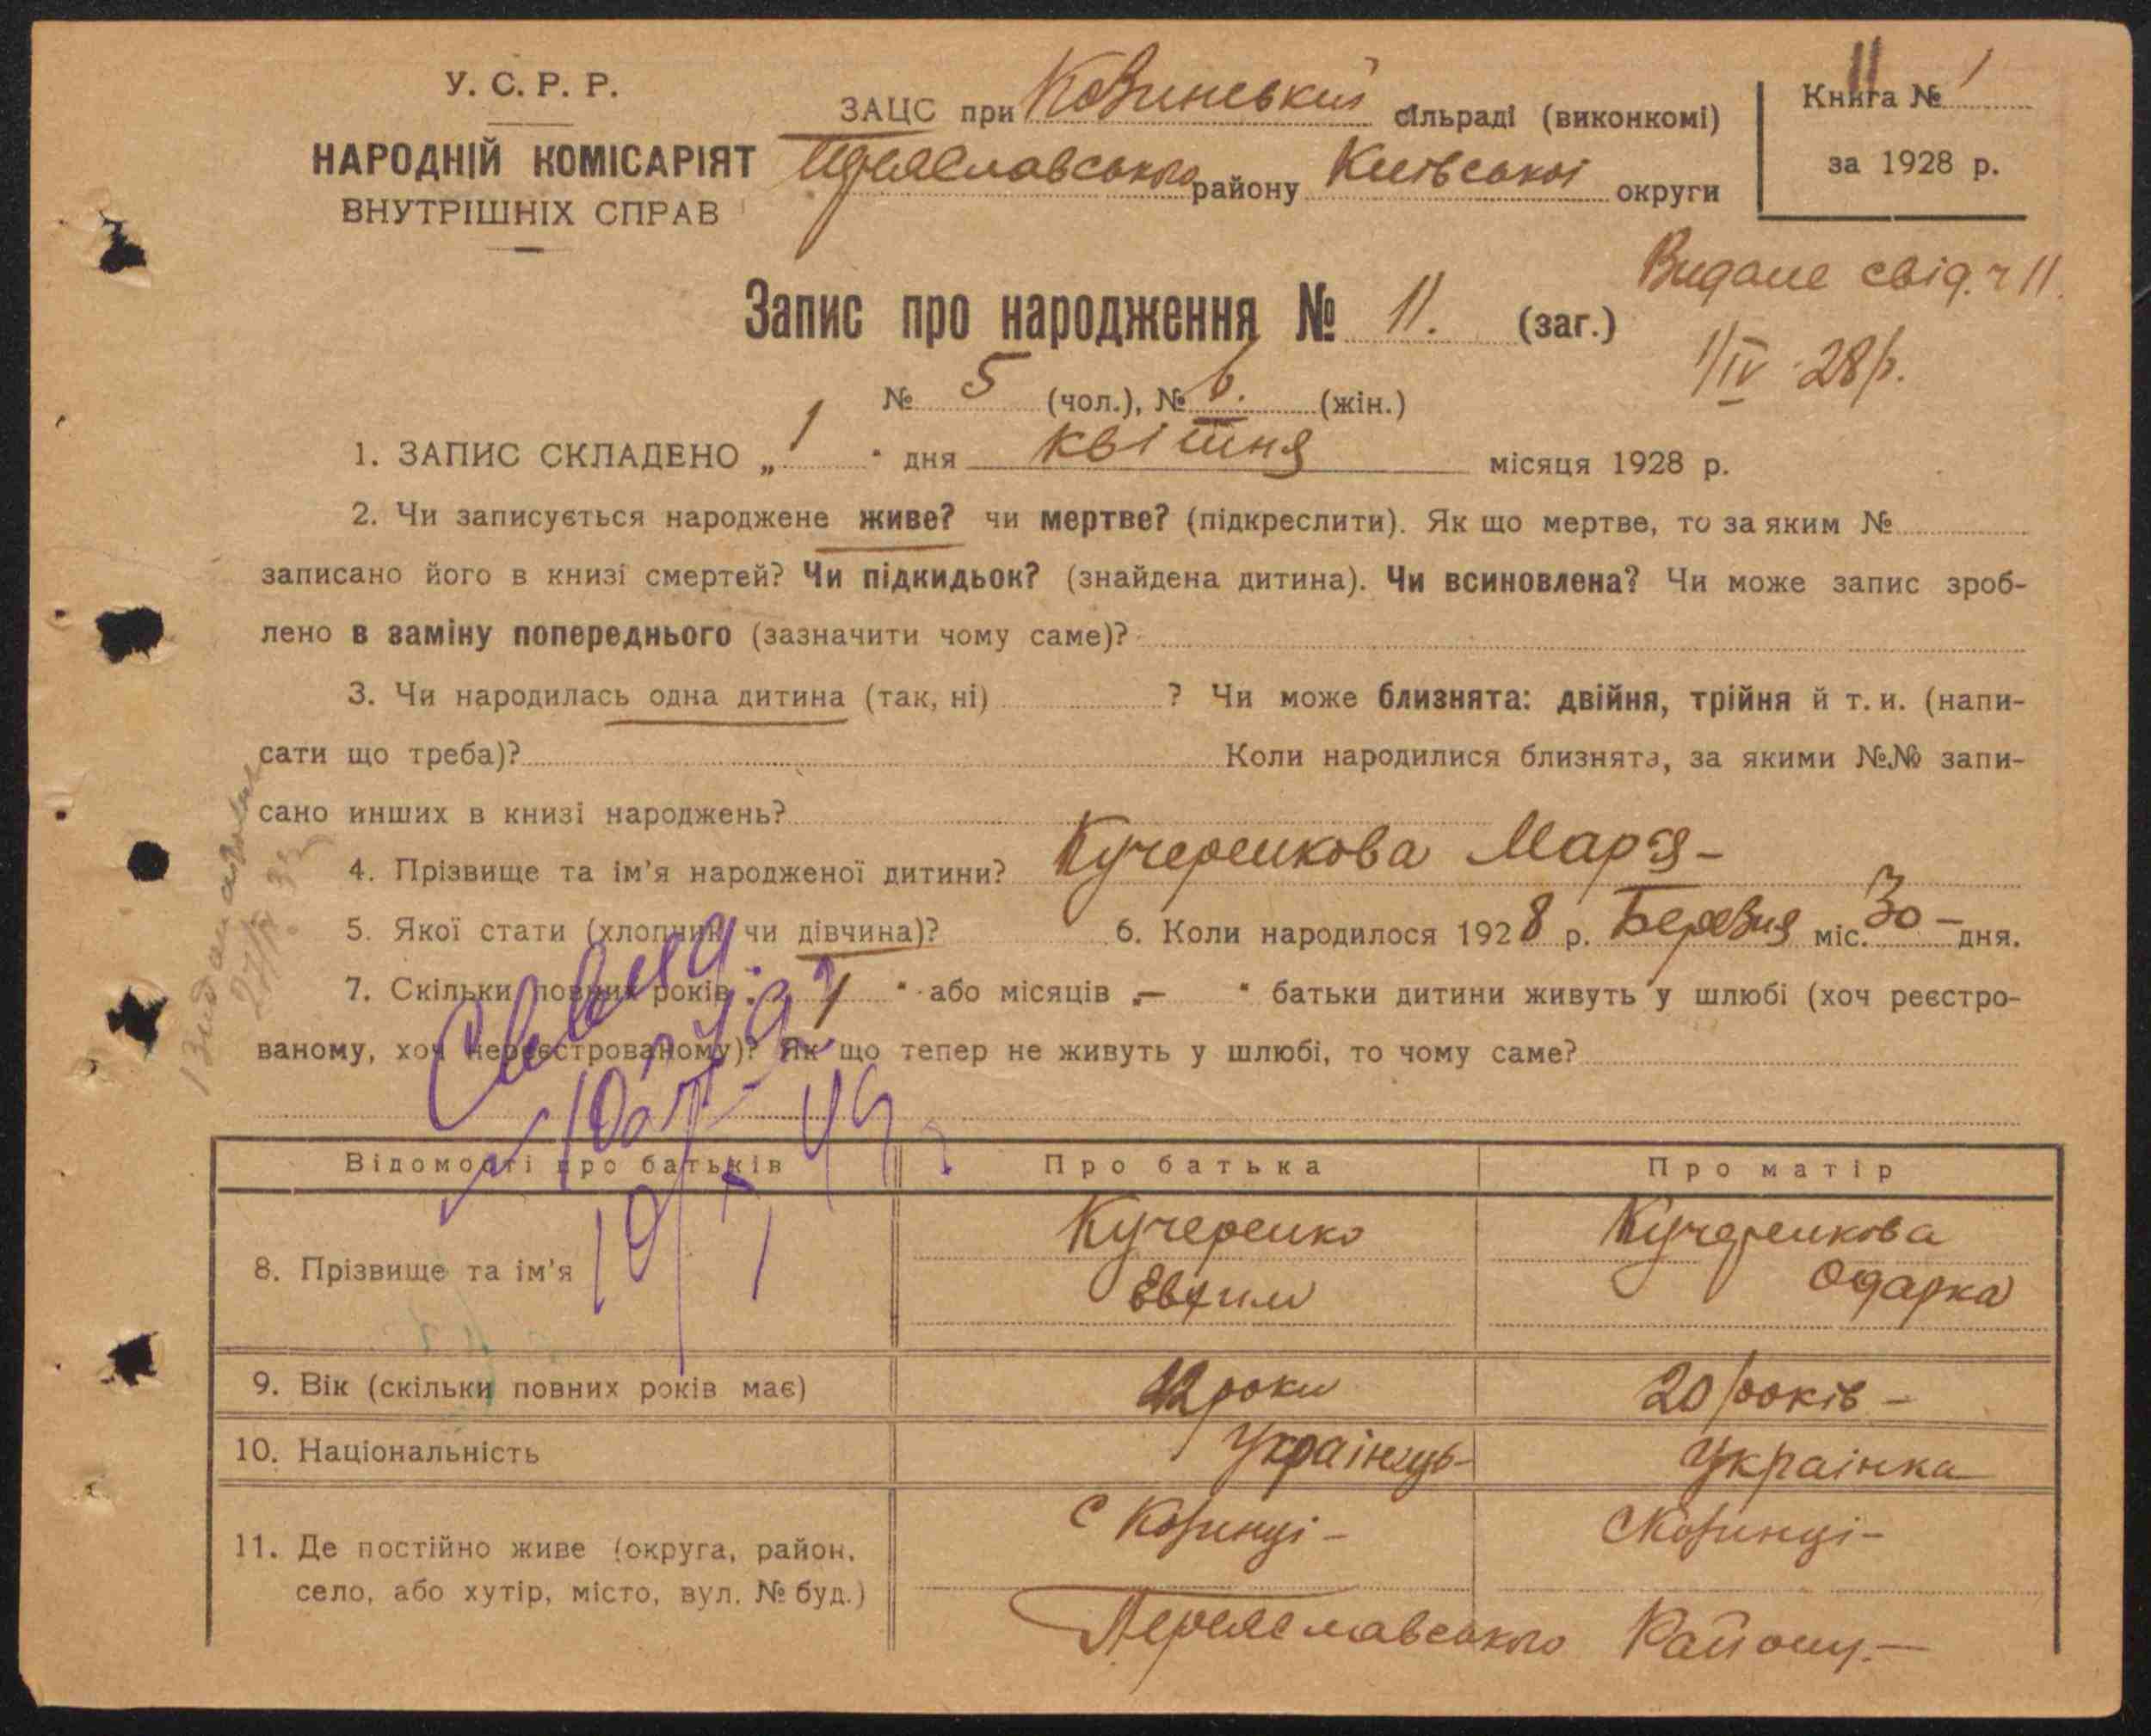 У. С. Р. Р.
НАРОДНІЙ КОМІСАРІЯТ
ВНУТРІШНІХ СПРАВ
ЗАЦС при Козинський сільраді (виконкомі)
Переяславського району Київської округи
Книга № 1
11
за 1928 р.
Видане свід. ч 11.
1/IV 28 р.
Запис про народження № 11. (заг.)
№ 5 (чол.), № 6. (жін.)
1. ЗАПИС СКЛАДЕНО „ 1 " дня квітня місяця 1928 р.
2. Чи записується народжене живе? чи мертве? (підкреслити). Як що мертве, то за яким №
записано його в книзі смертей? Чи підкидьок? (знайдена дитина). Чи всиновлена? Чи може запис зроб-
лено в заміну попереднього (зазначити чому саме)?
3. Чи народилась одна дитина (так, ні) ? Чи може близнята: двійня, трійня й т. и. (напи-
сати що треба)? Коли народилися близнята, за якими №№ запи-
сано инших в книзі народжень?
4. Прізвище та ім'я народженої дитини? Кучеренкова Маря -
5. Якої стати (хлопчик чи дівчина)? 6. Коли народилося 1928 р. Березня міс. 30 - дня.
7. Скільки повних років „ 1 " або місяців „ — " батьки дитини живуть у шлюбі (хоч реєстро-
ваному, хоч нереєстрованому)? Як що тепер не живуть у шлюбі, то чому саме?
Відомості про батьків Про батька Про матір
8. Прізвище та ім'я Кучеренко Евфим Кучеренкова Одарка
9. Вік (скільки повних років має) 22 роки 20 років -
10. Національність Українець - Українка
11. Де постійно живе (округа, район, с Козинці - с Козинці -
село, або хутір, місто, вул. № буд.)
Переяславського Району. —